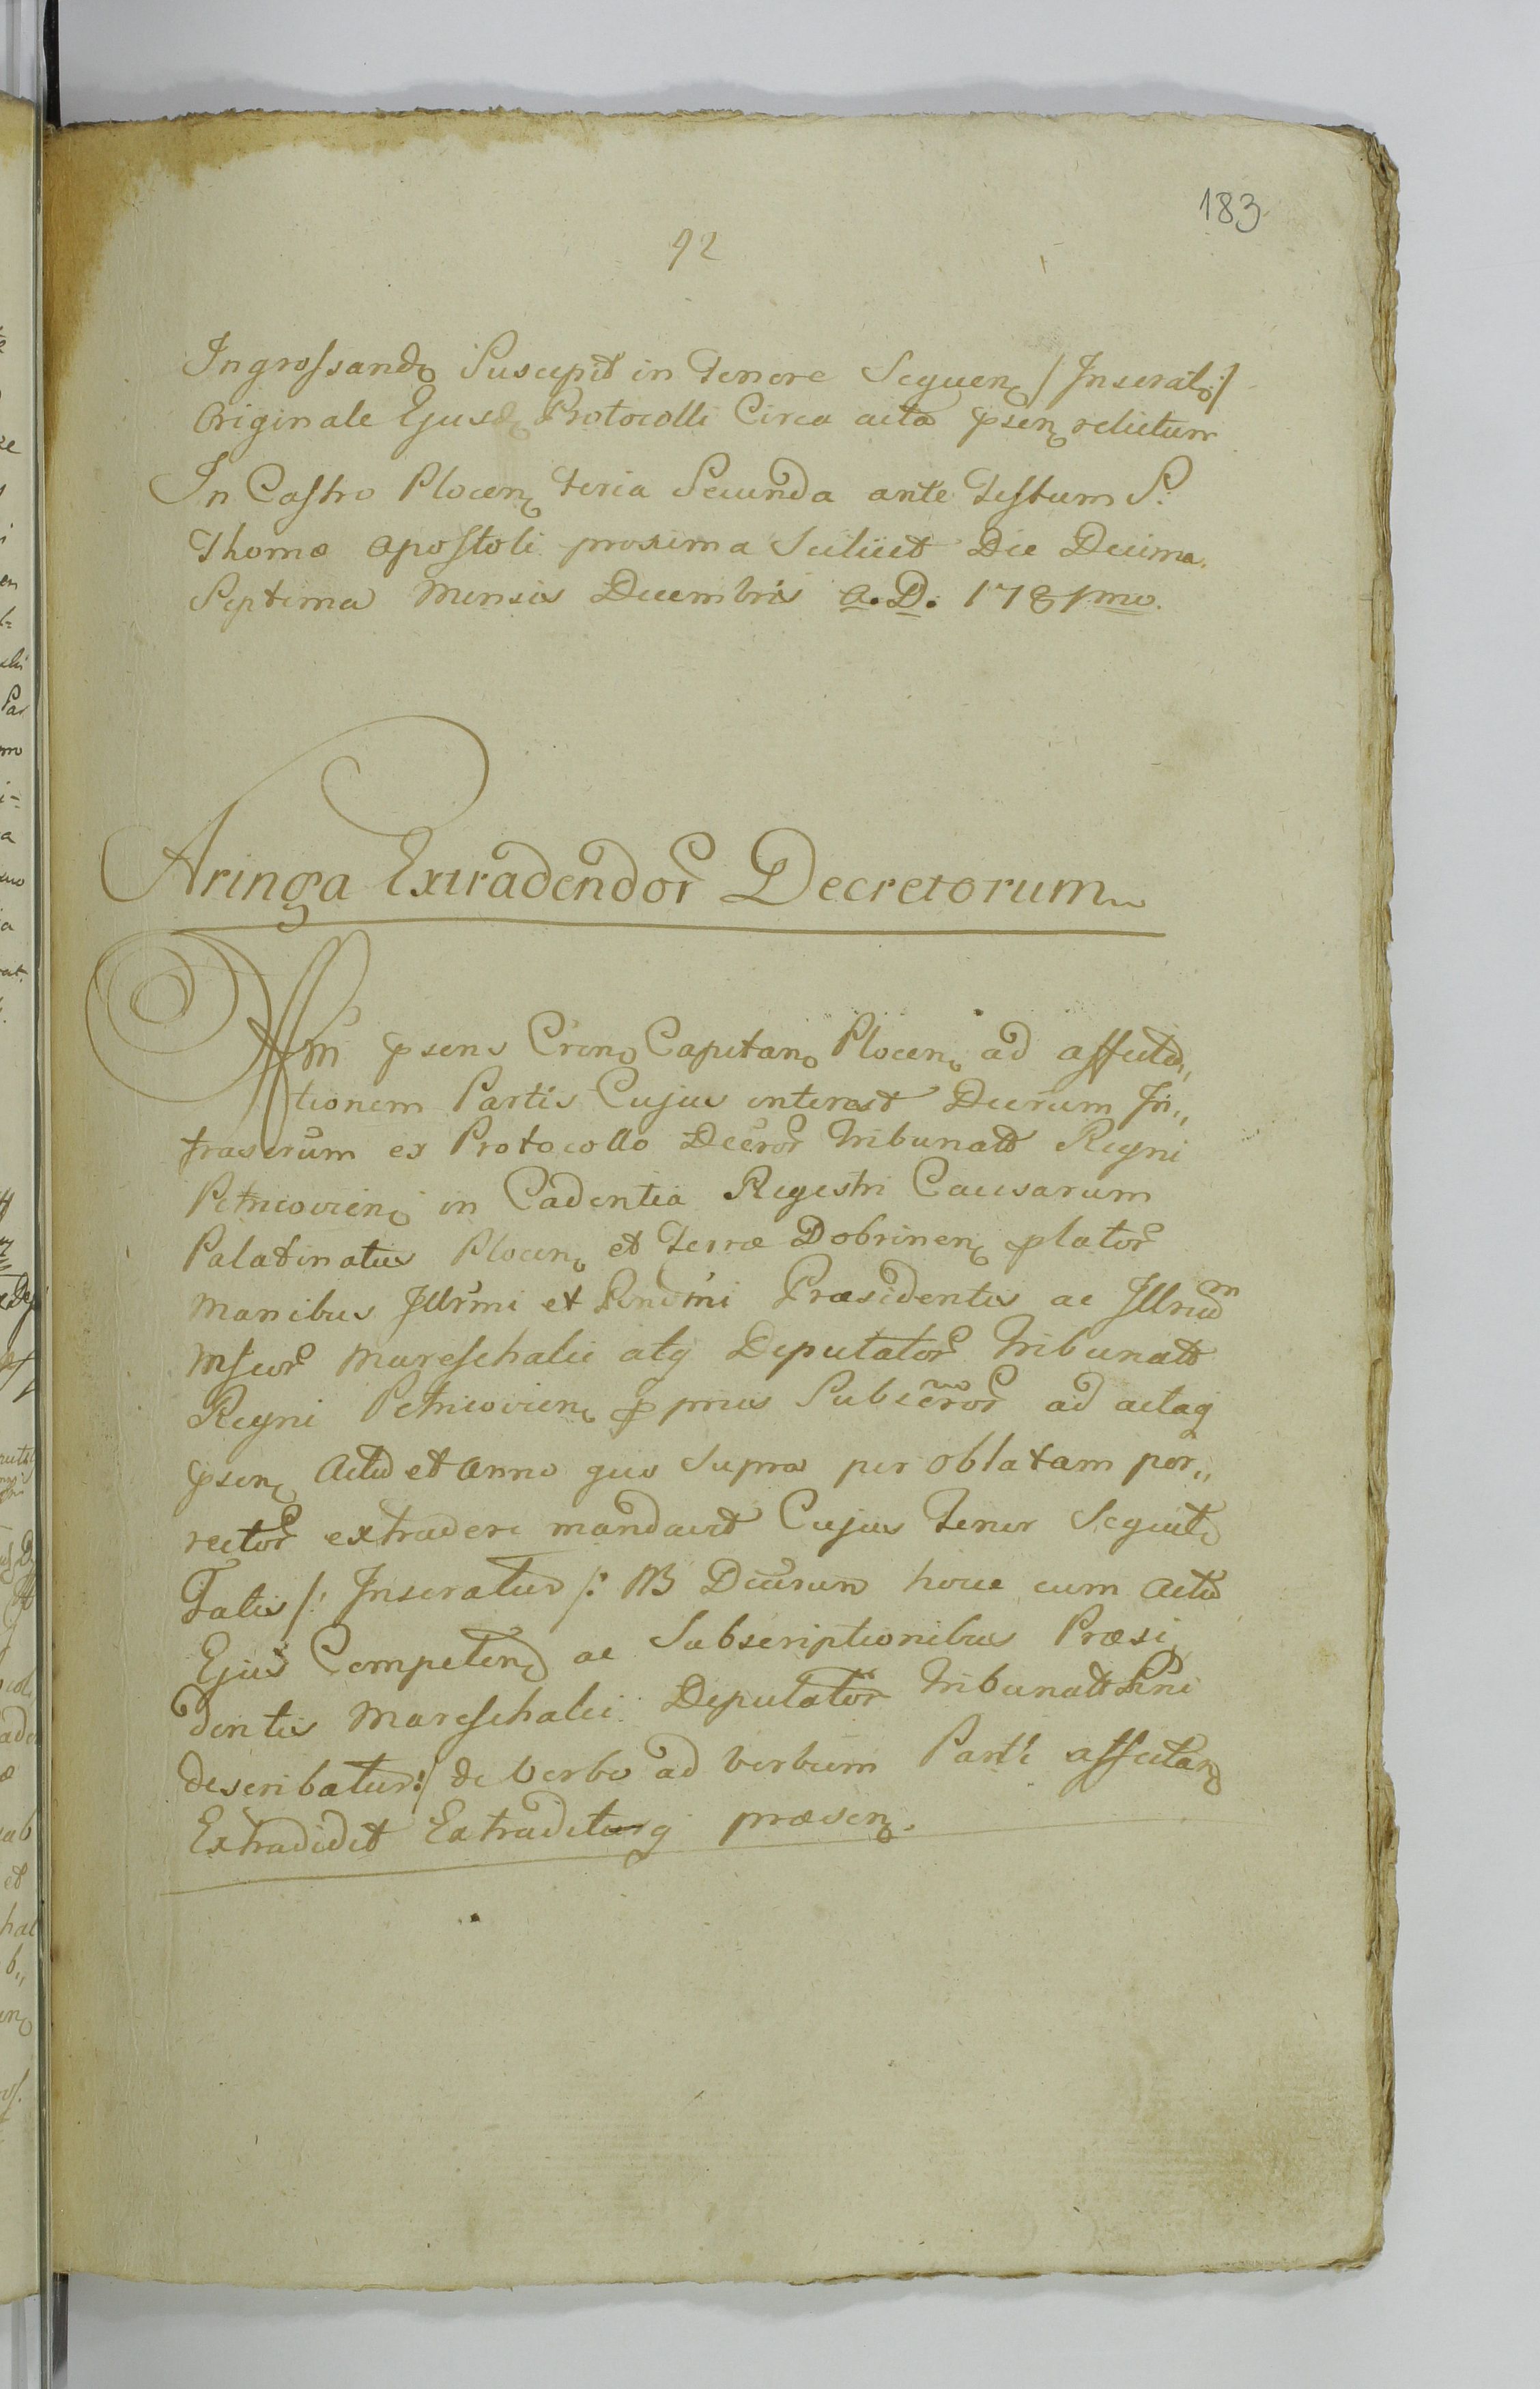 183
92
Ingrossando Suscepit in tenore Sequen /Inserat:/
Originale Ejusd Protocolli Circa acta psen relictum
In Castro Plocen feria Secunda ante Festum S.
Thomæ Apostoli proxima Scilicet Die Decima
Septima Mensis Decembris A. D. 1781mo.
Aringa Extradendor Decretorum
psens Cren Capitan Plocen ad affecta,,
tionem Partis Cujus interest Decrum In,,
frascrum ex Protocollo Decror Tribunatt Regni
Petricovien in Cadentia Regestri Causarum
Palatinatus Plocen et Terræ Dobrinen plator
Manibus Illrmi et Rndmi Præsidentis ac Illrium
Mscor Mareschalci atq Deputator Tribunatt
Regni Petricovien prius Subscror ad actaq
psen Actu et Anno quo Supra per Oblatam por,,
rector extradere mandavit Cujus Tenor Sequit
Talis /: Inseratur /: NB Decrum hocce cum Actu
Ejus Competen ac Subscriptionibus Præsi,
dentis Mareschalci Deputator Tribunatt
describatur:/ de Verbo ad Verbum Parti affectan
Extradidit Extraditurq præsen.